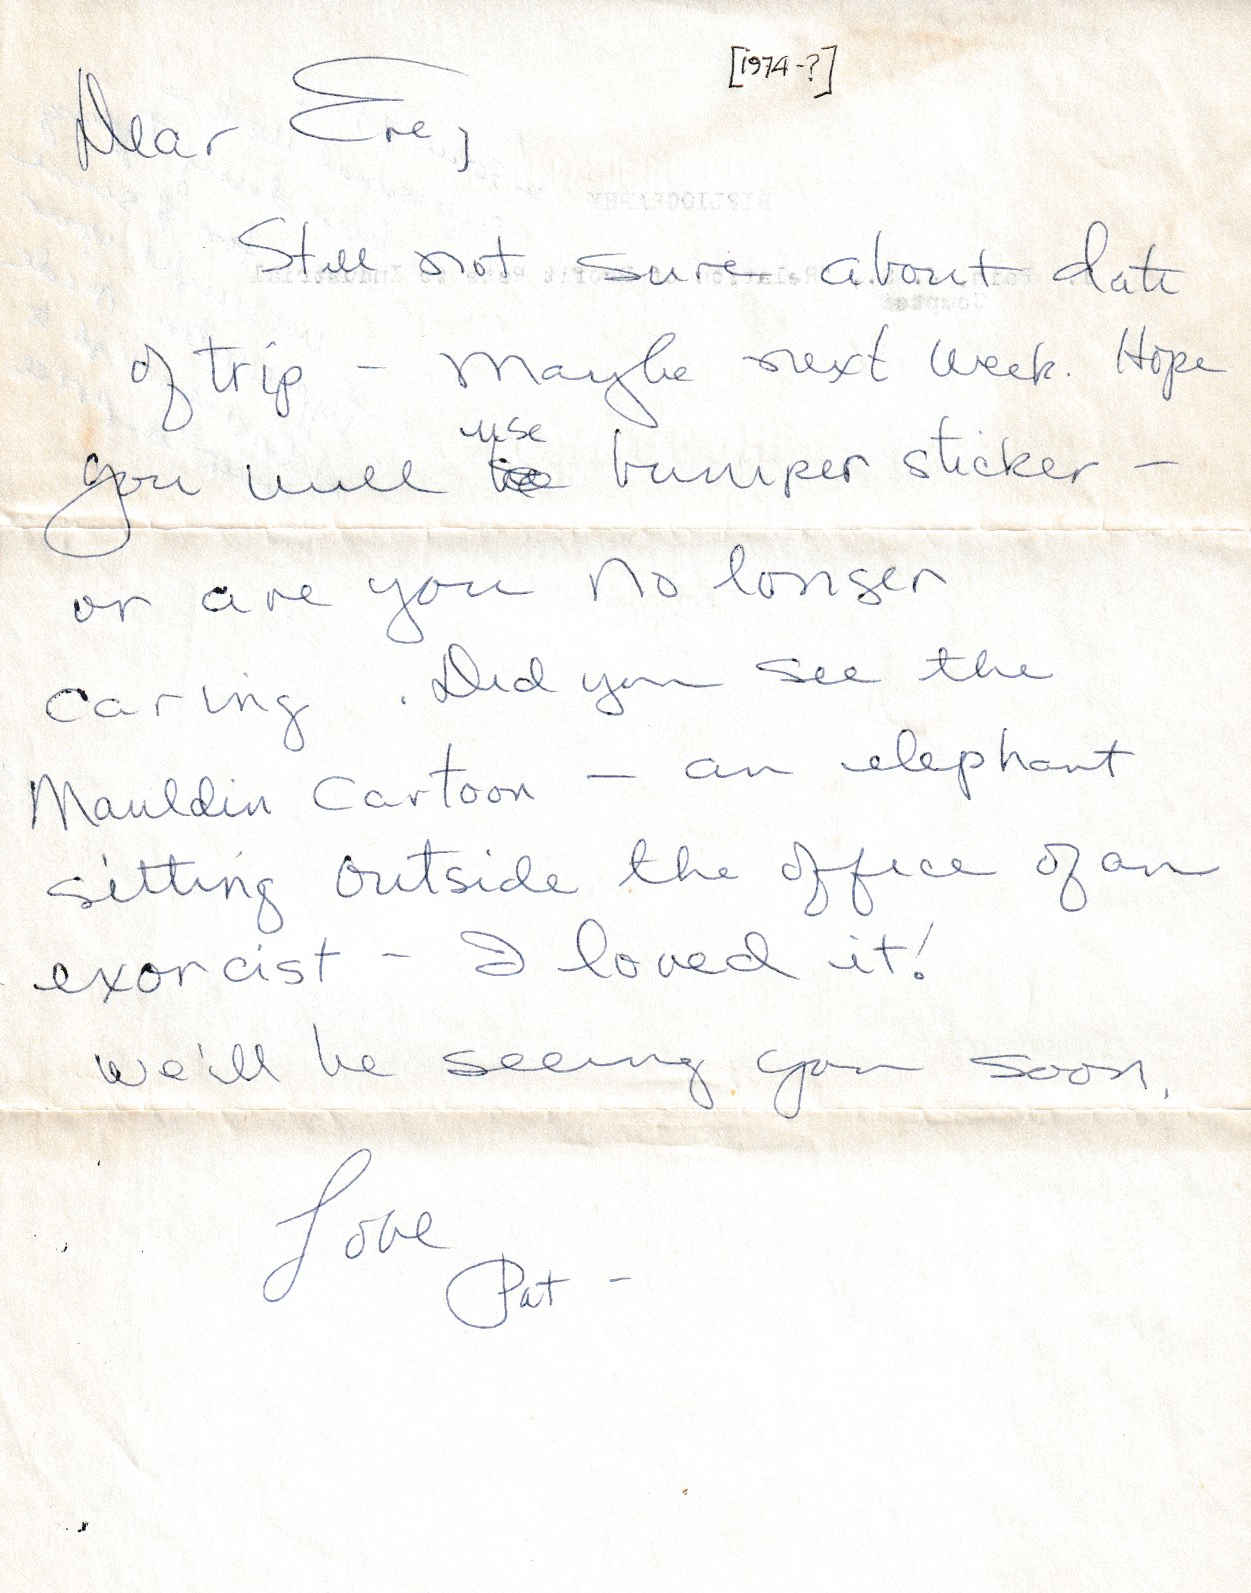 [1974-?]
Dear Eve,
Still not sure about date
of trip - Maybe next week. Hope
you will use bumper sticker -
or are you no longer
caring. Did you see the
Mauldin Cartoon - an elephant
sitting outside the office of an
exorcist - I loved it!
we'll be seeing you soon.
Love
Pat -
BIBLIOGRAPHY